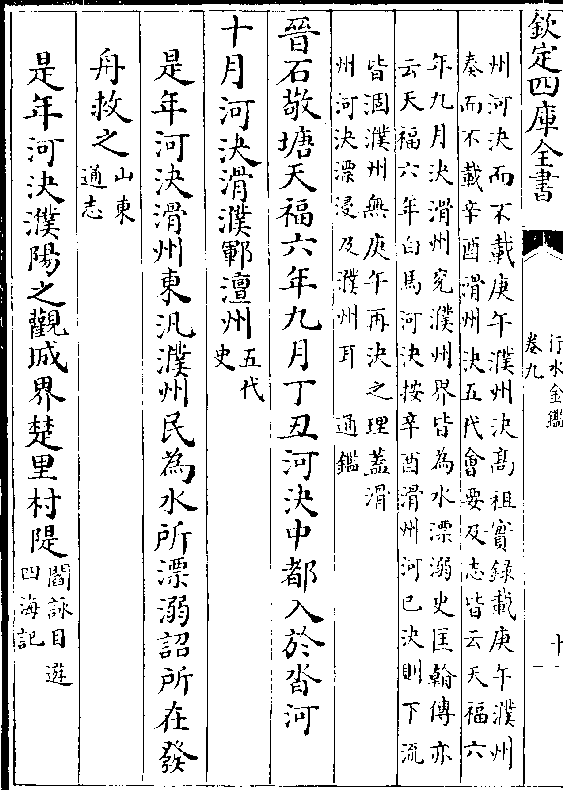 欽定四庫全書
行水金鑑
卷九
十一
州河決而不載庚午濮州決高祖實録載庚午濮州
奏而不載辛酉滑州決五代會要及志皆云天福六
年九月決滑州兖濮州界皆為水漂溺史匡翰傳亦
云天福六年白馬河決按辛酉滑州河已決則下流
皆涸濮州無庚午再決之理蓋滑
州河決漂浸及濮州耳 通鑑
晉石敬塘天福六年九月丁丑河決中都入於沓河
十月河決滑濮鄆澶州五代史
是年河決滑州東汎濮州民為水所漂溺詔所在發
舟救之山東通志
是年河決濮陽之觀城界楚里村隄閻詠目遊四海記